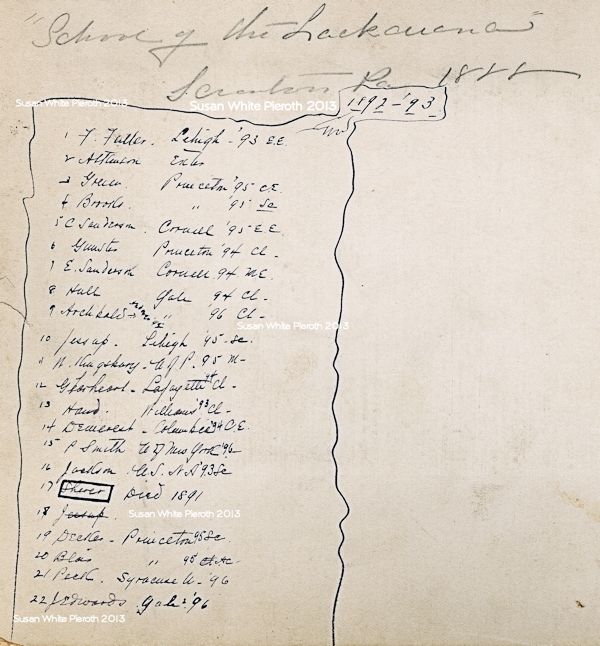 "School of the Lackawana"
Scranton Pa 1888
Susan White Pieroth 2013
Susan White Pieroth 2013
1892-'93
1 F. Fuller. Lehigh - '93 E.E.
2
3 Princeton '95 C.E.
4 Brooks " '95 Sc
5 C Sanderson. Cornell '95 E.E.
6 Gunster Princeton '94 Cl-
7 E. Sanderson Cornell '94 M.E.
8 Hull Yale 94 Cl-
9 Archbald " 96 Cl-
Susan White Pieroth 2013
10 Jessup. Lehigh '95-Sc.
11 N. Kingsbury - U of P. 95 M-
12 Lafayette Cl-
13 Hand. Williams '93 Cl-
14 Demerest - Columbia '94 C.E.
15 P Smith U of New York '96
16 Jackson U.S.N.A '93 Sc
17 Died 1891
18 Jessup.
Susan White Pieroth 2013
19 Decker - Princeton 95 Sc.
20 Blair " 95
21 Peck. Syracuse U - 96
22 J Edwards Yale '96
Susan White Pieroth 2013